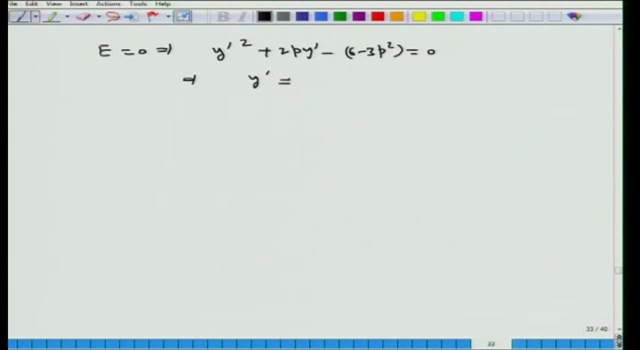 File Edit View Insert Actions Tools Help
E = 0 ⇒ y'² + 2py' - (6-3p²) = 0
⇒ y' =
33 / 40
33